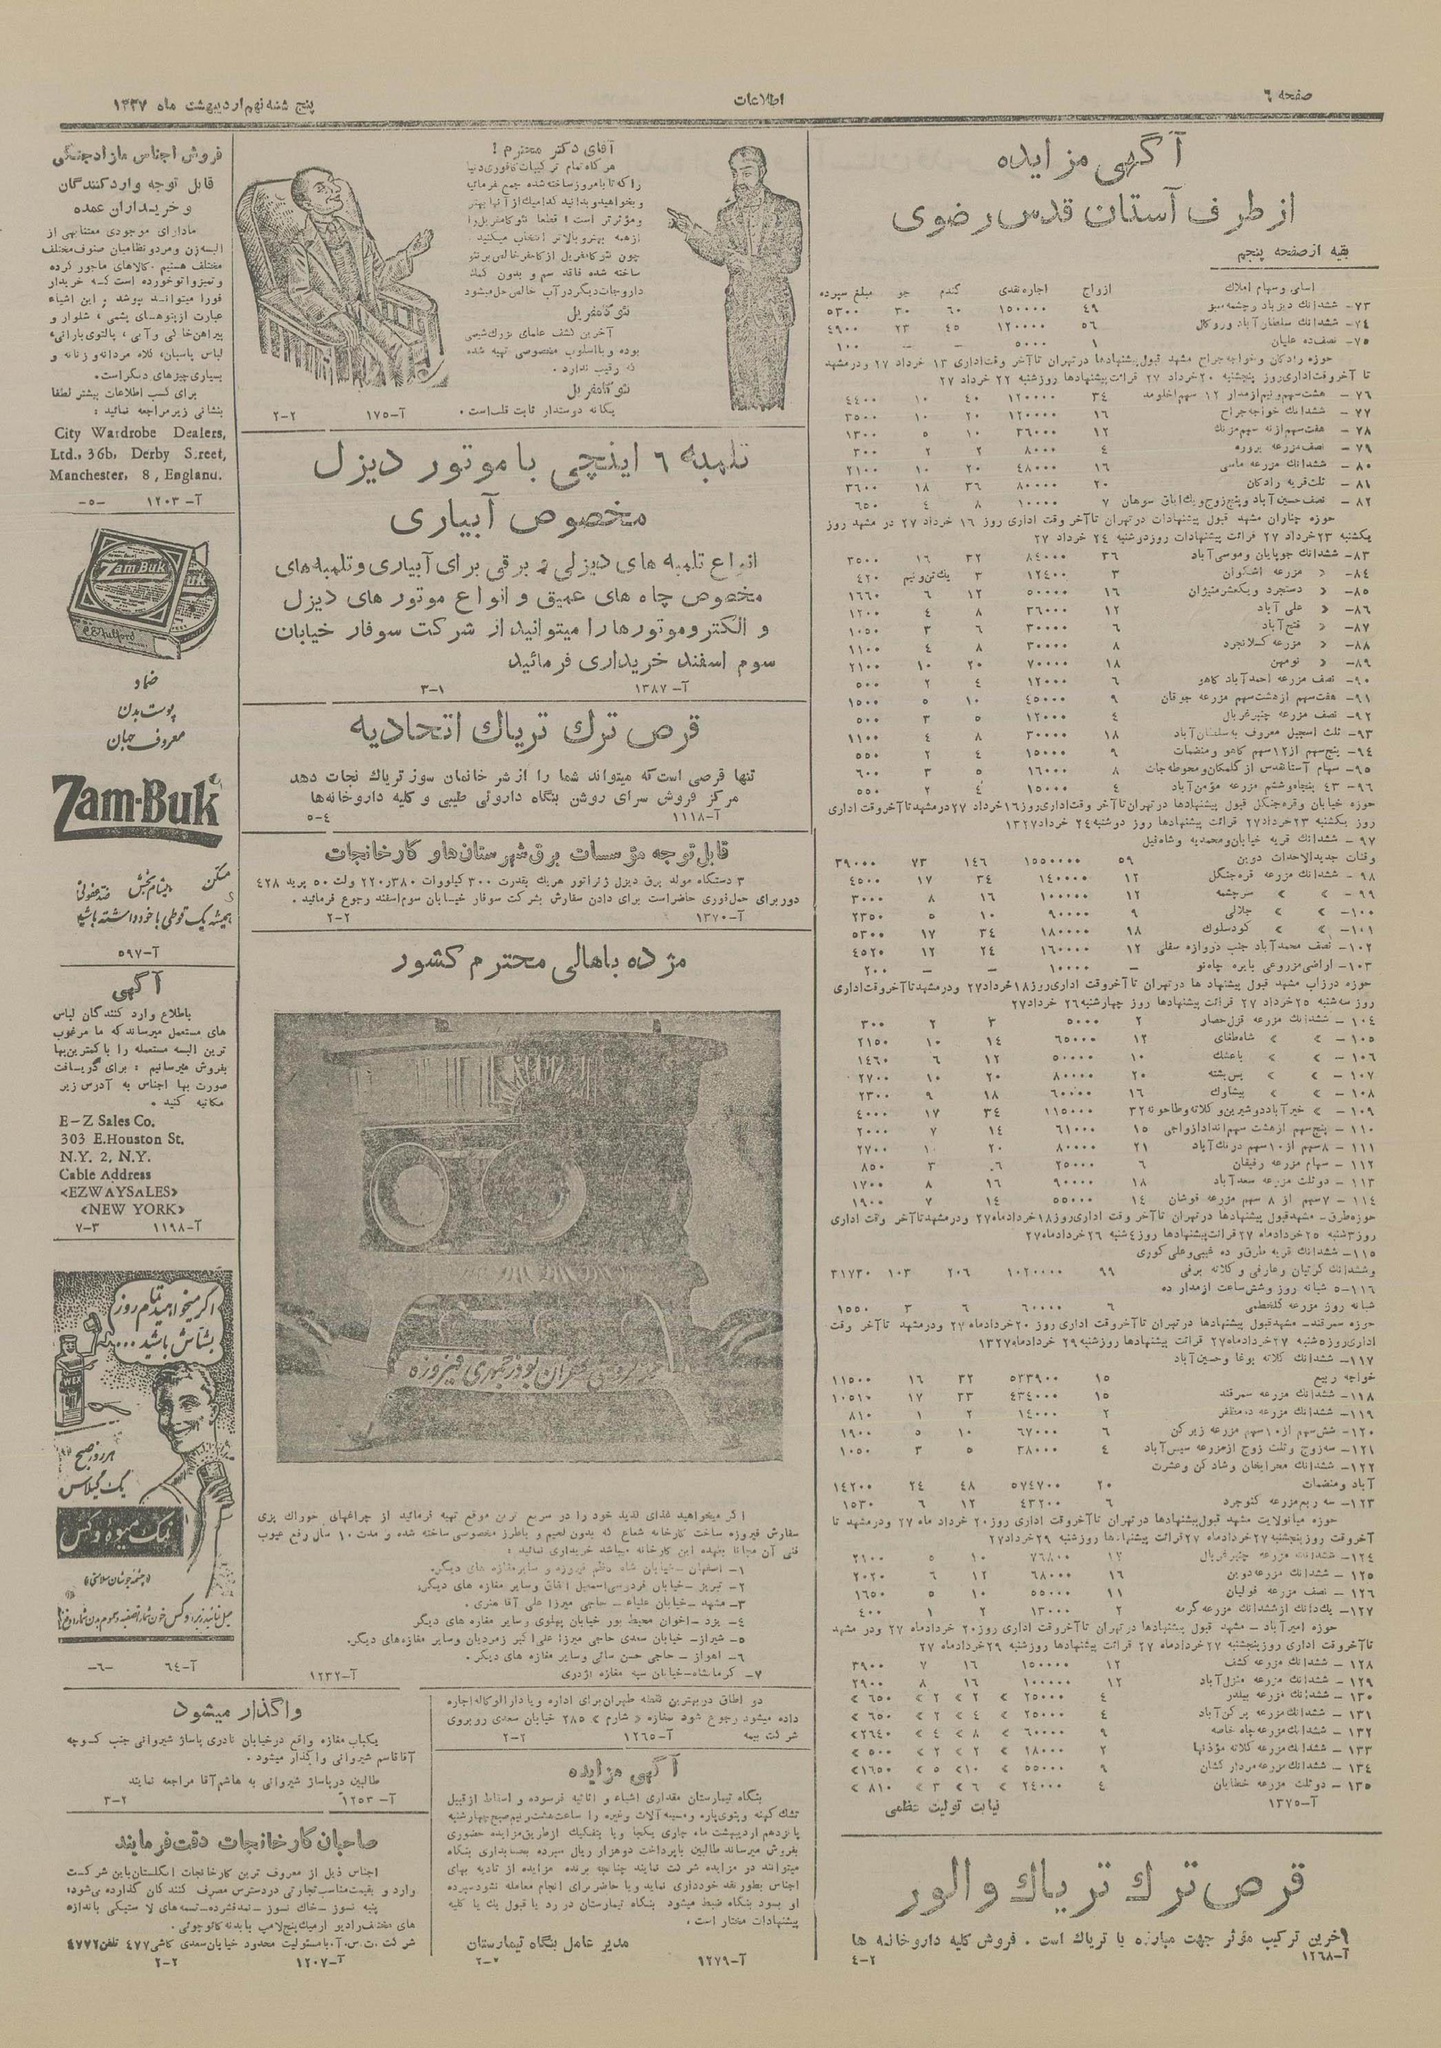 صفحه ۶
اطلاعات
پنج شنبه نهم اردیبهشت ماه ۱۳۲۷
آگهی مزایده
از طرف آستان قدس رضوی
بقیه از صفحه پنجم
اسامی و سهام املاک ازواج اجاره نقدی گندم جو مبلغ سپرده
۷۳- ششدانك دیزباد وچشمه سبو ۴۹ ۱۵۰۰۰۰ ۶۰ ۳۰ ۵۳۰۰
۷۴- ششدانك سلطان آباد وروکال ۵۶ ۱۲۰۰۰۰ ۴۵ ۲۳ ۴۹۰۰
۷۵- نصف ده علیان ۱ ۵۰۰۰ – – ۱۰۰
حوزه رادکان وخواجه جراح مشهد قبول پیشنهادها درتهران تا آخر وقت اداری ۱۳ خرداد ۲۷ ودر مشهد
تا آخر وقت اداری روز پنجشنبه ۲۰ خرداد ۲۷ قرائت پیشنهادها روزشنبه ۲۲ خرداد ۲۷
۷۶- هشت سهم و نیم از مدار ۱۲ سهم اخلومد ۳۴ ۱۲۰۰۰۰ ۴۰ ۱۰ ۴۴۰۰
۷۷- ششدانك خواجه جراح ۱۶ ۱۲۰۰۰۰ ۲۰ ۱۰ ۳۵۰۰
۷۸- هفت سهم از نه سهم مزنك ۱۲ ۳۶۰۰۰ ۱۰ ۵ ۱۳۰۰
۷۹- نصف مزرعه بروره ۴ ۸۰۰۰ ۲ ۲ ۳۰۰
۸۰- ششدانك مزرعه ماسی ۱۶ ۴۸۰۰۰ ۲۰ ۱۰ ۲۱۰۰
۸۱- ثلث قریه رادکان ۲۰ ۸۰۰۰۰ ۳۶ ۱۸ ۳۶۰۰
۸۲- نصف حسین آباد وپنج زوج ویك اباق سوهان ۷ ۱۰۰۰۰ ۸ ۴ ۶۵۰
حوزه چناران مشهد قبول پیشنهادات در تهران تا آخر وقت اداری روز ۱۶ خرداد ۲۷ در مشهد روز
یکشنبه ۲۳ خرداد ۲۷ قرائت پیشنهادات روز دوشنبه ۲۴ خرداد ۲۷
۸۳- ششدانك جوپایان وموسی آباد ۳۶ ۸۴۰۰۰ ۳۲ ۱۶ ۳۵۰۰
۸۴- « مزرعه اشکوان ۳ ۱۲۴۰۰ ۳ یك تن و نیم ۴۲۰
۸۵- « دستجرد ویکعشر متیزان ۱۶ ۵۰۰۰۰ ۱۲ ۶ ۱۶۶۰
۸۶- « علی آباد ۱۲ ۳۶۰۰۰ ۸ ۴ ۱۲۰۰
۸۷- « فتح آباد ۶ ۳۰۰۰۰ ۶ ۳ ۱۰۵۰
۸۸- « مزرعه کلانجرد ۸ ۳۰۰۰۰ ۸ ۴ ۱۱۰۰
۸۹- « تومهن ۱۸ ۷۰۰۰۰ ۲۰ ۱۰ ۲۱۰۰
۹۰- نصف مزرعه احمدآباد کاهو ۶ ۱۲۰۰۰ ۴ ۲ ۵۰۰
۹۱- هفت سهم از هشت سهم مزرعه جوقان ۹ ۴۵۰۰۰ ۱۰ ۵ ۱۵۰۰
۹۲- نصف مزرعه چنبرغربال ۴ ۱۲۰۰۰ ۵ ۳ ۵۰۰
۹۳- ثلث اسجیل معروف به سلطان آباد ۱۸ ۳۰۰۰۰ ۸ ۴ ۱۱۰۰
۹۴- پنج سهم از ۱۲ سهم کاهو و منضمات ۹ ۱۵۰۰۰ ۴ ۲ ۵۵۰
۹۵- سهام آستانقدس از گلمکان ومحوطه جات ۸ ۱۶۰۰۰ ۵ ۳ ۶۰۰
۹۶- ۴۳ پنجاه و ششم مزرعه مؤمن آباد ۴ ۱۵۰۰۰ ۴ ۲ ۵۵۰
حوزه خیابان وقره جنگل قبول پیشنهادها در تهران تا آخر وقت اداری روز ۱۶ خرداد ۲۷ در مشهد تا آخر وقت اداری
روز یکشنبه ۲۳ خرداد ۲۷ قرائت پیشنهادها روز دوشنبه ۲۴ خرداد ۱۳۲۷
۹۷- ششدانك قریه خیابان ومحمدیه وشاه فیل
وقنات جدید الاحداث دوین ۵۹ ۱۵۵۰۰۰۰ ۱۴۶ ۷۳ ۳۹۰۰۰
۹۸- ششدانك مزرعه قره جنگل ۱۲ ۱۴۰۰۰۰ ۳۴ ۱۷ ۴۵۰۰
۹۹- « « سرچشمه ۱۲ ۱۰۰۰۰۰ ۱۶ ۸ ۳۰۰۰
۱۰۰- « « جلالی ۹ ۹۰۰۰۰ ۱۰ ۵ ۲۳۵۰
۱۰۱- « « کودسلوك ۹۸ ۱۸۰۰۰۰ ۳۴ ۱۷ ۵۳۰۰
۱۰۲- نصف محمدآباد جنب دروازه سفلی ۱۲ ۱۶۰۰۰۰ ۲۴ ۱۲ ۴۵۲۰
۱۰۳- اراضی مزروعی بایره چاه نو – ۱۰۰۰۰ – – ۲۰۰
حوزه درزاب مشهد قبول پیشنهاد ها در تهران تا آخر وقت اداری روز ۱۸ خرداد ۲۷ ودر مشهد تا آخر وقت اداری
روز سه شنبه ۲۵ خرداد ۲۷ قرائت پیشنهادها روز چهارشنبه ۲۶ خرداد ۲۷
۱۰۴- ششدانك مزرعه قزل حصار ۲ ۵۰۰۰ ۳ ۲ ۳۰۰
۱۰۵- « « شاه طغای ۱۲ ۶۵۰۰۰ ۱۴ ۱۰ ۲۱۵۰
۱۰۶- « « باعشك ۱۰ ۵۰۰۰۰ ۱۲ ۶ ۱۴۶۰
۱۰۷- « « پس پشته ۲۰ ۸۰۰۰۰ ۲۰ ۱۰ ۲۷۰۰
۱۰۸- « « بیشاوك ۱۶ ۶۰۰۰۰ ۱۸ ۹ ۲۳۰۰
۱۰۹- « خیرآباد دوشیرین و کلاته وطاحونه ۳۲ ۱۱۵۰۰۰ ۳۴ ۱۷ ۴۰۰۰
۱۱۰- پنج سهم از هشت سهم انداد ازواجی ۱۵ ۶۱۰۰۰ ۱۴ ۷ ۲۰۰۰
۱۱۱- ۸ سهم از ۱۰ سهم درنك آباد ۲۱ ۸۰۰۰۰ ۲۰ ۱۰ ۲۷۰۰
۱۱۲- سهام مزرعه رفیقان ۶ ۲۵۰۰۰ ۶ ۳ ۸۵۰
۱۱۳- دو ثلث مزرعه سعدآباد ۱۸ ۹۰۰۰۰ ۱۶ ۸ ۱۷۰۰
۱۱۴- ۷ سهم از ۸ سهم مزرعه فوشان ۱۴ ۵۵۰۰۰ ۱۴ ۷ ۱۹۰۰
حوزه طرق- مشهد قبول پیشنهادها در تهران تا آخر وقت اداری روز ۱۸ خرداد ماه ۲۷ ودر مشهد تا آخر وقت اداری
روز ۳ شنبه ۲۵ خرداد ماه ۲۷ قرائت پیشنهادها روز ۴ شنبه ۲۶ خرداد ماه ۲۷
۱۱۵- ششدانك قریه طرق و ده غیبی و علی کوری
وششدانك کرتیان وعارفی و کلاته برفی ۹۹ ۱۰۲۰۰۰۰ ۲۰۶ ۱۰۳ ۳۱۷۳۰
۱۱۶- ۵ شبانه روز وشش ساعت از مدار ده
شبانه روز مزرعه گلخطمی ۶ ۶۰۰۰۰ ۶ ۳ ۱۵۵۰
حوزه سمرقند- مشهد قبول پیشنهادها در تهران تا آخر وقت اداری روز ۲۰ خرداد ماه ۲۷ ودر مشهد تا آخر وقت
اداری روز ۵ شنبه ۲۷ خرداد ماه ۲۷ قرائت پیشنهادها روز شنبه ۲۹ خرداد ماه ۱۳۲۷
۱۱۷- ششدانك کلاته بوغا وحسین آباد
خواجه ربیع ۱۵ ۵۳۳۹۰۰ ۳۲ ۱۶ ۱۱۵۰۰
۱۱۸- ششدانك مزرعه سمرقند ۱۵ ۴۳۴۰۰۰ ۳۳ ۱۷ ۱۰۵۱۰
۱۱۹- ششدانك مزرعه ده مظفر ۲ ۱۴۰۰۰ ۲ ۱ ۸۱۰
۱۲۰- شش سهم از ۱۰ سهم مزرعه زیرکن ۶ ۶۷۰۰۰ ۱۰ ۵ ۱۹۰۰
۱۲۱- سه زوج و ثلث زوج از مزرعه سیس آباد ۴ ۳۸۰۰۰ ۵ ۳ ۱۰۵۰
۱۲۲- ششدانك محرابخان وشادکن وعشرت
آباد ومنضمات ۲۰ ۵۷۴۷۰۰ ۴۸ ۲۴ ۱۴۲۰۰
۱۲۳- سه ربع مزرعه کنوجرد ۶ ۴۳۲۰۰ ۱۲ ۶ ۱۵۳۰
حوزه میانولایت مشهد قبول پیشنهادها در تهران تا آخر وقت اداری روز ۲۰ خرداد ماه ۲۷ ودر مشهد تا
آخر وقت روز پنجشنبه ۲۷ خرداد ماه ۲۷ قرائت پیشنهادها روز شنبه ۲۹ خرداد ۲۷
۱۲۴- ششدانك مزرعه چنبرغربال ۱۷ ۷۶۸۰۰ ۱۰ ۵ ۲۱۰۰
۱۲۵- ششدانك مزرعه دوین ۱۶ ۶۸۰۰۰ ۱۲ ۶ ۲۰۲۰
۱۲۶- نصف مزرعه قولیان ۱۱ ۵۵۰۰۰ ۱۰ ۵ ۱۶۵۰
۱۲۷- یك دانك از ششدانك مزرعه گرمه ۲ ۱۳۰۰۰ ۲ ۱ ۴۰۰
حوزه امیرآباد - مشهد قبول پیشنهادها در تهران تا آخر وقت اداری روز ۲۰ خرداد ماه ۲۷ ودر مشهد
تا آخر وقت اداری روز پنجشنبه ۲۷ خرداد ماه ۲۷ قرائت پیشنهادها روز شنبه ۲۹ خرداد ماه ۲۷
۱۲۸- ششدانك مزرعه کشف ۱۲ ۱۵۰۰۰۰ ۱۶ ۷ ۳۹۰۰
۱۲۹- ششدانك مزرعه منزل آباد ۱۲ ۱۰۰۰۰۰ ۱۶ ۸ ۲۹۰۰
۱۳۰- ششدانك مزرعه بیلدر ۴ ۲۵۰۰۰ « ۲ « ۲ « ۶۵۰ «
۱۳۱- ششدانك مزرعه پرکن آباد ۴ ۲۵۰۰۰ « ۴ « ۲ « ۶۵۰ «
۱۳۲- ششدانك مزرعه چاه خاصه ۹ ۶۰۰۰۰ « ۸ « ۴ « ۲۶۴۰ «
۱۳۳- ششدانك مزرعه کلاته مؤذنها ۲ ۱۸۰۰۰ « ۲ « ۲ « ۵۰۰ «
۱۳۴- ششدانك مزرعه مردارکشان ۹ ۵۵۰۰۰ « ۱۰ « ۵ « ۱۶۵۰ «
۱۳۵- دو ثلث مزرعه خطایان ۴ ۲۴۰۰۰ « ۶ « ۳ « ۸۱۰ «
آ-۱۳۷۵ نیابت تولیت عظمی
قرص ترك تریاك والور
آخرین ترکیب مؤثر جهت مبارزه با تریاك است . فروش کلیه داروخانه ها
آ-۱۲۶۸ ۴-۲
آقای دکتر محترم !
هرگاه تمام ترکیبات کافوری دنیا
را که تا بامروز ساخته شده جمع فرمائید
و بخواهید بدانید کدامیك از آنها بهتر
ومؤثرتر است ؛ قطعا نئوکامفریل را
از همه بهتر و بالاتر انتخاب میکنید .
چون نئوکامفریل از کامفر خالص بر نئو
ساخته شده فاقد سم و بدون کمك
داروجات دیگر در آب خالص حل میشود
نئوکامفریل
آخرین کشف علمای بزرك شیمی
بوده و با اسلوب مخصوصی تهیه شده
که رقیب ندارد .
نئوکامفریل
یگانه دوستدار ثابت قلب است .
آ-۱۷۵ ۲-۲
تلمبه ۶ اینچی با موتور دیزل
مخصوص آبیاری
انواع تلمبه های دیزلی و برقی برای آبیاری و تلمبه های
مخصوص چاه های عمیق و انواع موتور های دیزل
و الکتروموتورها را میتوانید از شرکت سوفار خیابان
سوم اسفند خریداری فرمائید
آ-۱۳۸۷ ۳-۱
قرص ترك تریاك اتحادیه
تنها قرصی است که میتواند شما را از شر خانمان سوز تریاك نجات دهد
مرکز فروش سرای روشن بنگاه داروئی طبیبی و کلیه داروخانه ها
آ-۱۱۱۸ ۵-۴
قابل توجه مؤسسات برق شهرستان ها و کارخانجات
۳ دستگاه مولد برق دیزل ژنراتور هریك بقدرت ۳۰۰ کیلووات ۲۲۰/۳۸۰ ولت ۵۰ پرید ۴۲۸
دور برای حمل فوری حاضر است برای دادن سفارش بشرکت سوفار خیابان سوم اسفند رجوع فرمائید .
آ-۱۳۷۰ ۲-۲
مژده باهالی محترم کشور
اگر میخواهید غذای لذیذ خود را در سریع ترین موقع تهیه فرمائید از چراغهای خوراك پزی
سفارش فیروزه ساخت کارخانه شعاع که بدون لحیم و باطرز مخصوصی ساخته شده و مدت ۱۰ سال رفع عیوب
فنی آن مجانا بعهده این کارخانه میباشد خریداری نمائید :
۱- اصفهان -خیابان شاه مغازه فیروزه و سایر مغازه های دیگر.
۲- تبریز -خیابان فردوسی اسمعیل اتفاق وسایر مغازه های دیگر.
۳- مشهد- خیابان علیاء- حاجی میرزا علی آقا هنری .
۴- یزد- اخوان محیط پور خیابان پهلوی وسایر مغازه های دیگر
۵- شیراز- خیابان سعدی حاجی میرزا علی اکبر زمردیان وسایر مغازه های دیگر.
۶- اهواز- حاجی حسن سائی وسایر مغازه های دیگر .
۷- کرمانشاه-خیابان سپه مغازه اژدری
آ-۱۲۳۲
دو اطاق در بهترین نقطه طهران برای اداره و یا دارالوکاله اجاره
داده میشود رجوع شود مغازه « شارم » ۲۸۵ خیابان سعدی روبروی
شرکت بیمه آ-۱۲۶۵ ۲-۲
آگهی مزایده
بنگاه تیمارستان مقداری اشیاء و اثاثیه فرسوده و اسقاط از قبیل
تشك کهنه و پتوی پاره و مسینه آلات وغیره را ساعت هشت ونیم صبح چهارشنبه
پانزدهم اردیبهشت ماه جاری یکجا ویا بتفکیك از طریق مزایده حضوری
بفروش میرساند طالبین با پرداخت دوهزار ریال سپرده بحسابداری بنگاه
میتوانند در مزایده شرکت نمایند چنانچه برنده مزایده از تادیه بهای
اجناس بطور نقد خودداری نماید ویا حاضر برای انجام معامله نشود سپرده
او بسود بنگاه ضبط میشود بنگاه تیمارستان در رد یا قبول یك یا کلیه
پیشنهادات مختار است .
مدیر عامل بنگاه تیمارستان
آ-۱۲۷۹ ۷-۲
فروش اجناس مازاد جنگی
قابل توجه واردکنندگان
و خریداران عمده
مادارای موجودی معتنابهی از
البسه زن ومرد و نظامیان صنوف مختلف
مختلف هستیم .کالاهای ماجور کرده
وتمیز واتوخورده است که خریدار
فورا میتوانند بپوشد . این اشیاء
عبارت از پتوهای پشمی ، شلوار و
پیراهن خاکی وآبی ، پالتوی بارانی ،
لباس پاسبان، کلاه مردانه و زنانه و
بسیاری چیزهای دیگر است.
برای کسب اطلاعات بیشتر لطفا
بنشانی زیر مراجعه نمائید :
City Wardrobe Dealers,
Ltd., 36b, Derby Street,
Manchester, 8, England.
آ-۱۲۰۳ -۵-
Zam-Buk
ضماد
پوست بدن
معروف جهان
Zam-Buk
مسکن
التیام بخش
ضدعفونی
همیشه یک قوطی با خود داشته باشید
آ-۵۹۷
آگهی
باطلاع وارد کنندگان لباس
های مستعمل میرساند که ما مرغوب
ترین البسه مستعمله را با کمترین بها
بفروش میرسانیم ؛ برای گریافت
صورت بها اجناس به آدرس زیر
مکاتبه کنید .
E-Z Sales Co.
303 E.Houston St.
N.Y. 2, N.Y.
Cable Address
<EZWAYSALES>
<NEW YORK>
آ-۱۱۹۸ ۷-۳
اگر میخواهید تمام روز
بشاش باشید....
هر روز صبح
یک گیلاس
نمک میوه وکس
آ-۶۴ -۶-
واگذار میشود
یکباب مغازه واقع درخیابان نادری پاساژ شیروانی جنب کوچه
آقاقاسم شیروانی واگذار میشود .
طالبین درپاساژ شیروانی به هاشم آقا مراجعه نمایند
آ-۱۲۵۳ ۳-۲
صاحبان کارخانجات دقت فرمایند
اجناس ذیل از معروف ترین کارخانجات انگلستان باین شرکت
وارد و بقیمت مناسب تجارتی دردسترس مصرف کنندگان گذارده میشود:
پنبه نسوز -خاك نسوز -نمد فشرده-تسمه های لاستیکی باندازه
های مختلف رادیو ارمیك پنج لامپ با بدنه کائوچوئی.
شرکت .ت.س.آ. با مسئولیت محدود خیابان سعدی کاشی ۴۷۷ تلفن ۴۷۷۲
آ-۱۲۰۷ ۲-۲